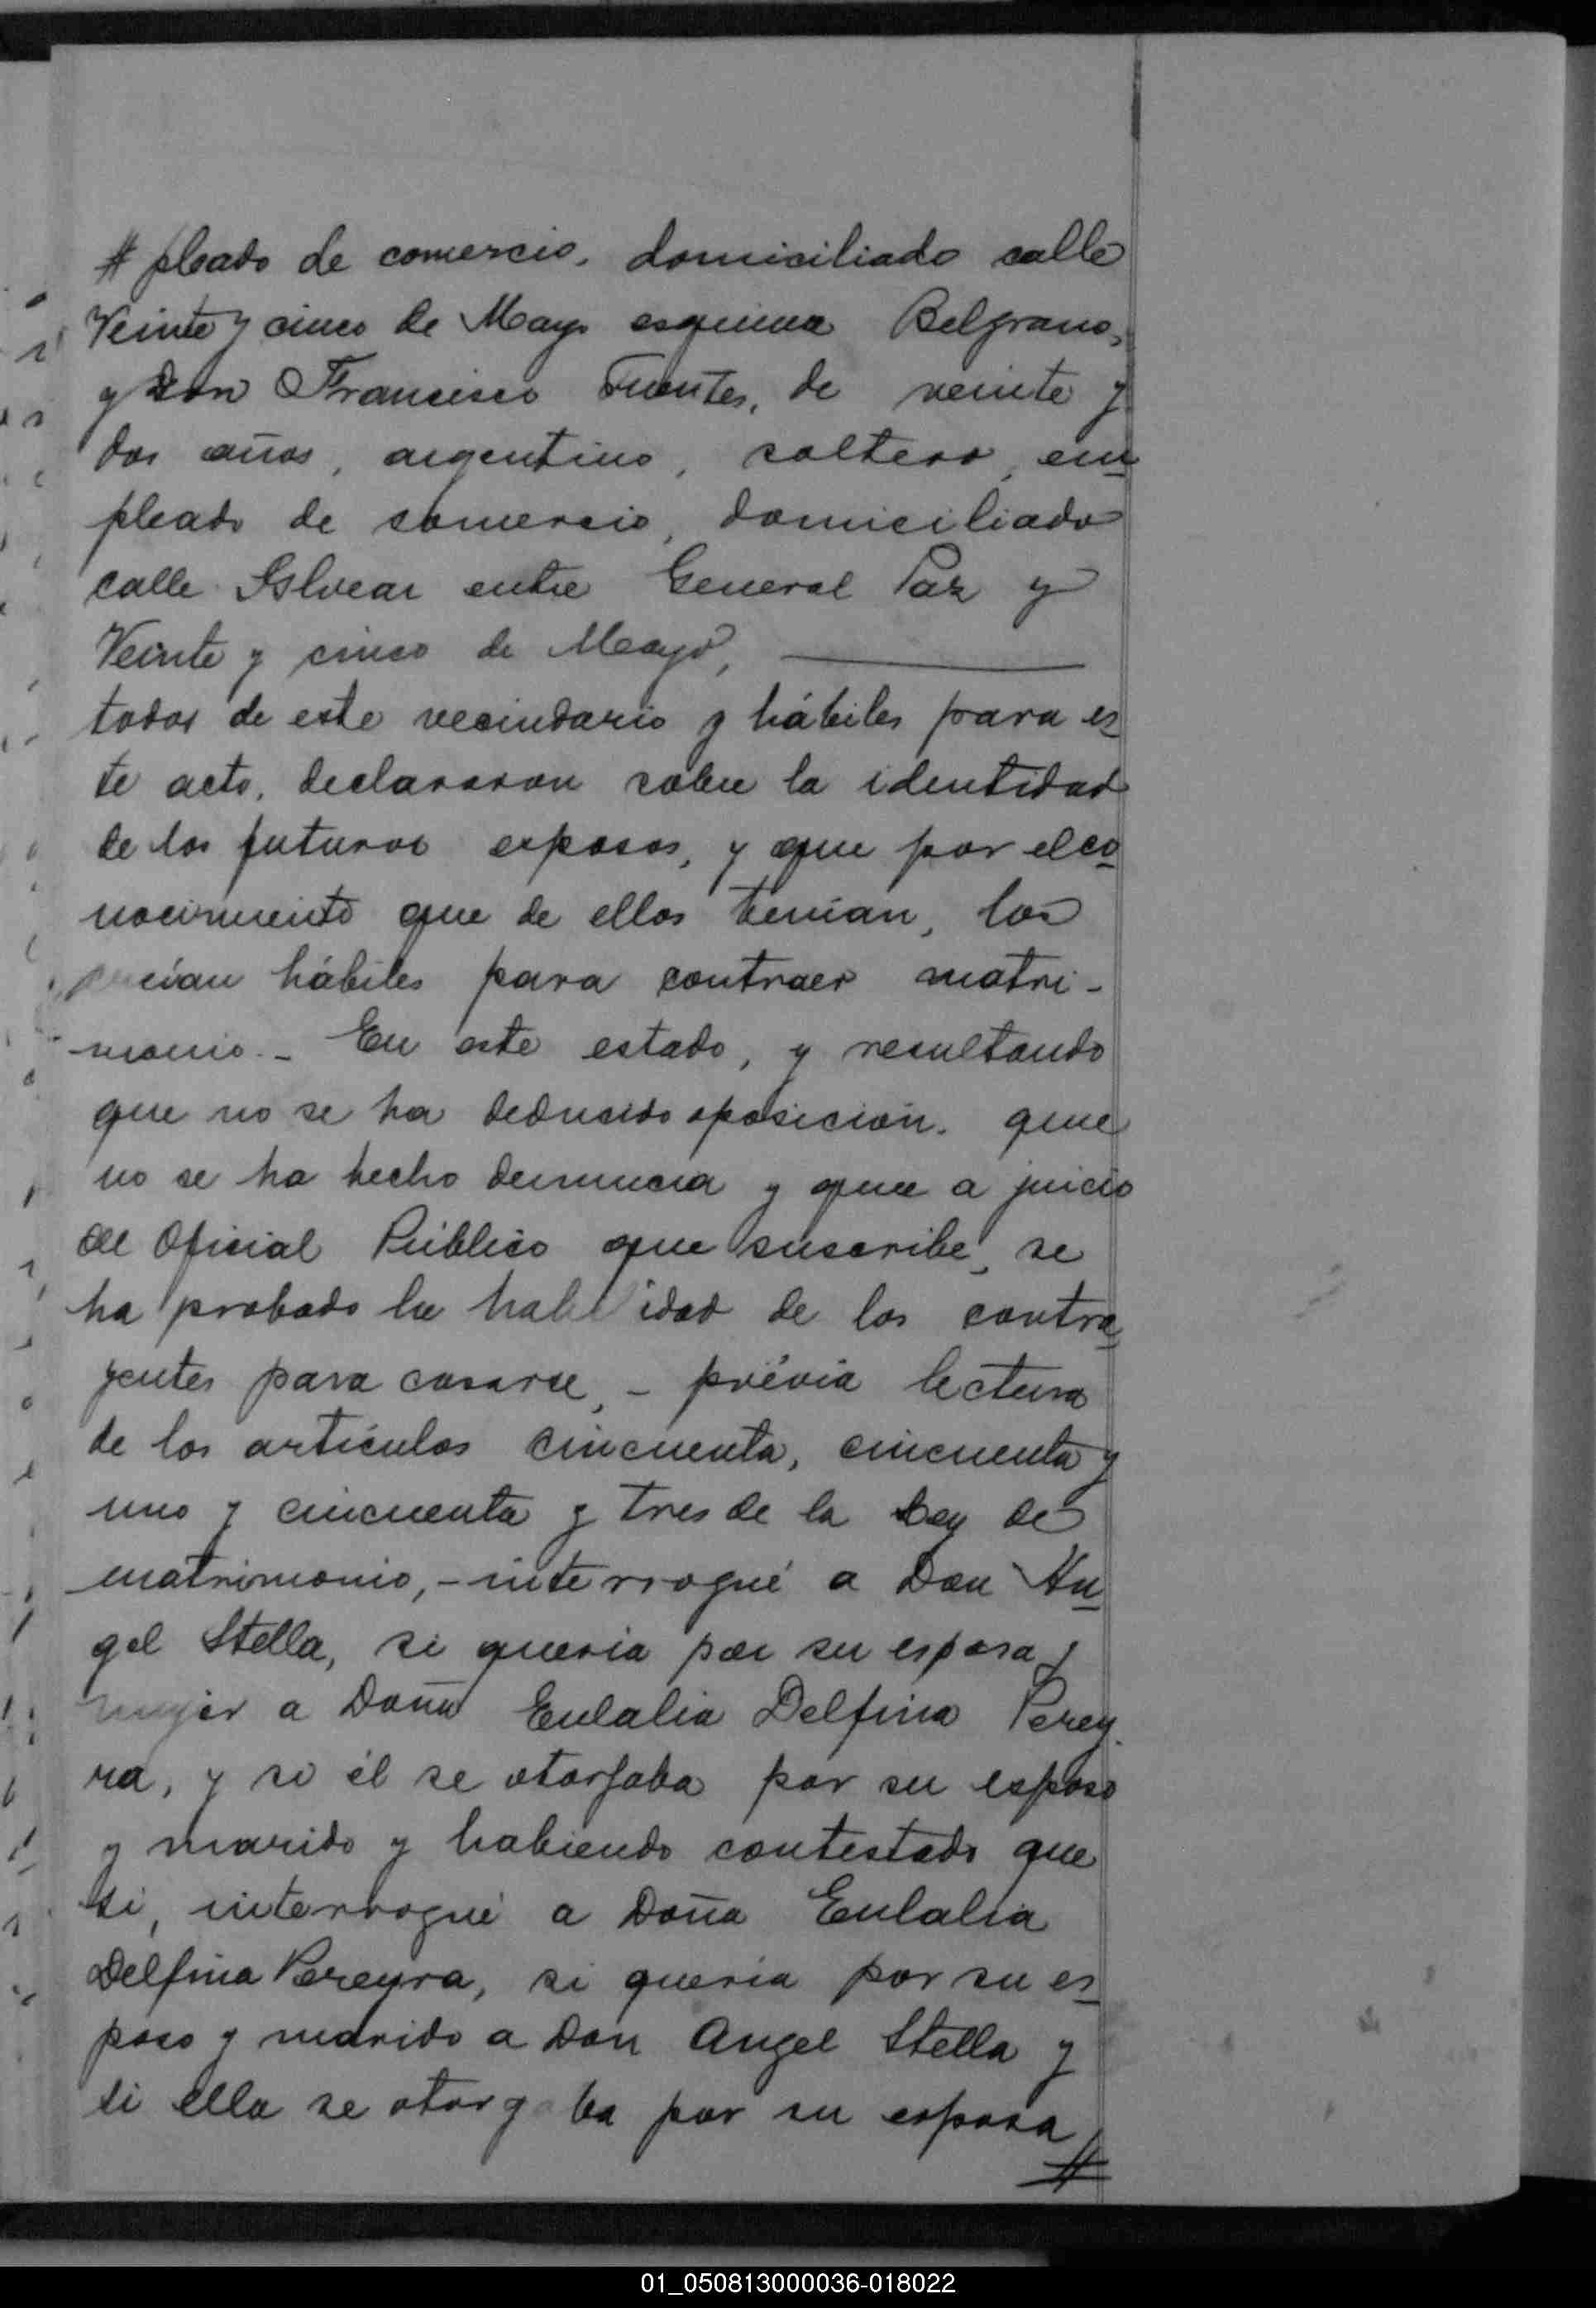 # pleado de comercio, domiciliado calle
Veinte y cinco de Mayo esquina Belgrano,
y don Francisco Fuentes, de veinte y
dos años, argentino, soltero, em
pleado de comercio, domiciliado
calle Alvear entre General Paz y
Veinte y cinco de Mayo,
todos de este vecindario y hábiles para es
te acto, declararon sobre la identidad
de los futuros esposos, y que por el co
nocimiento que de ellos tenían, los
creían hábiles para contraer matri-
monio.- En este estado, y resultando
que no se ha deducido oposición, que
no se ha hecho denuncia y que a juicio
del Oficial Público que suscribe, se
ha probado la habilidad de los contra
yentes para casarse, - prévia lectura
de los artículos cincuenta, cincuenta y
uno y cincuenta y tres de la Ley de
matrimonio, - interrogué a Don An
gel Stella, si queria por su esposa y
mujer a Doña Eulalia Delfina Perey
ra, y si él se otorgaba por su esposo
y marido y habiendo contestado que
si, interrogué a Doña Eulalia
Delfina Pereyra, si queria por su es
poso y marido a Don Angel Stella y
si ella se otorgaba por su esposa
#
01_050813000036-018022